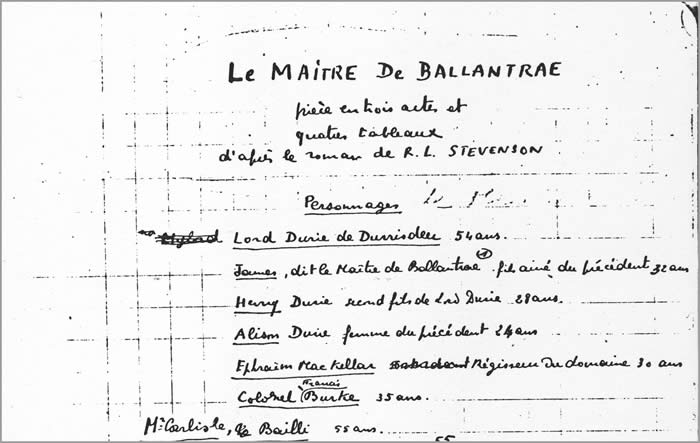 LE MAÎTRE DE BALLANTRAE
pièce en trois actes et
quatres tableaux
d'après le roman de R. L. STEVENSON
Personnages
Lord Durie de Durrisdeer 54 ans.
James, dit le Maître de Ballantrae. fils aîné du précédent 32 ans
Henry Durie second fils de Lord Durie 28 ans.
Alison Durie femme du précédent 24 ans
Ephraïm Mac Kellar Régisseur du domaine 30 ans
Francis
Colonel Burke 35 ans.
Mr Carlisle, le Bailli 55 ans.
55